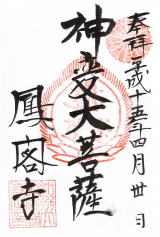 奉拝 平成十五年四月廿日
神変大菩薩
鳳閣寺